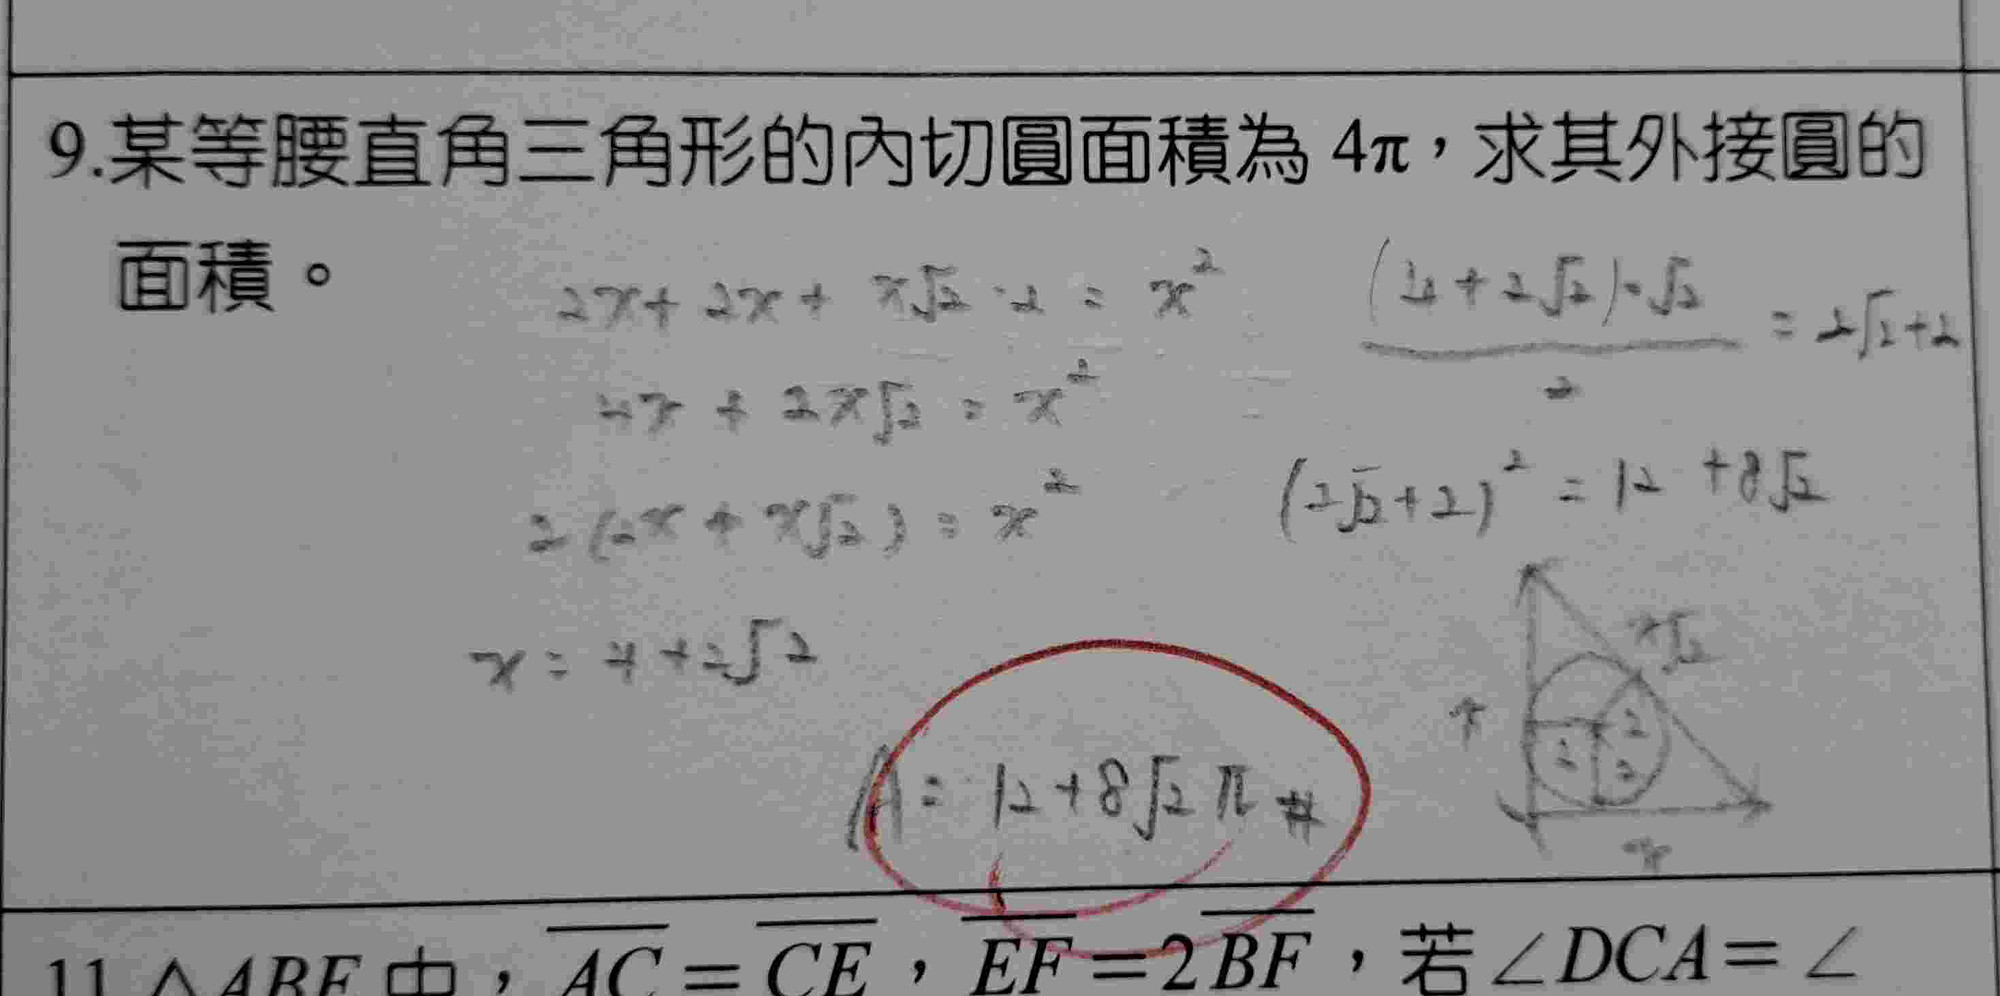 9.某等腰直角三角形的內切圓面積為 4π，求其外接圓的
面積。
2x+2x+x√2·2=x²
4x+2x√2=x²
2(2x+x√2)=x²
x=4+2√2
(4+2√2)·√2
2
=2√2+2
(2√2+2)²=12+8√2
A=12+8√2π#
x√2
x
2
2
2
x
11.△ABE中，AC=CE，EF=2BF，若∠DCA=∠